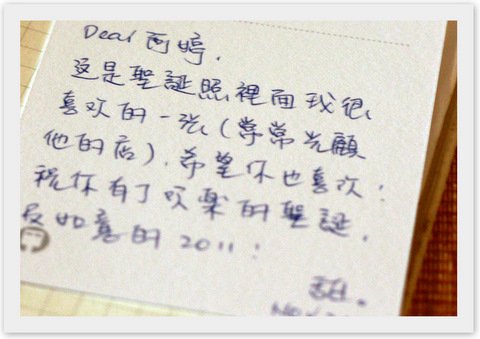 Dear 阿婷,
这是聖誕照裡面我很
喜欢的一张(常常光顧
他的店). 希望你也喜欢!
祝你有个欢樂的聖誕,
及如意的 2011!